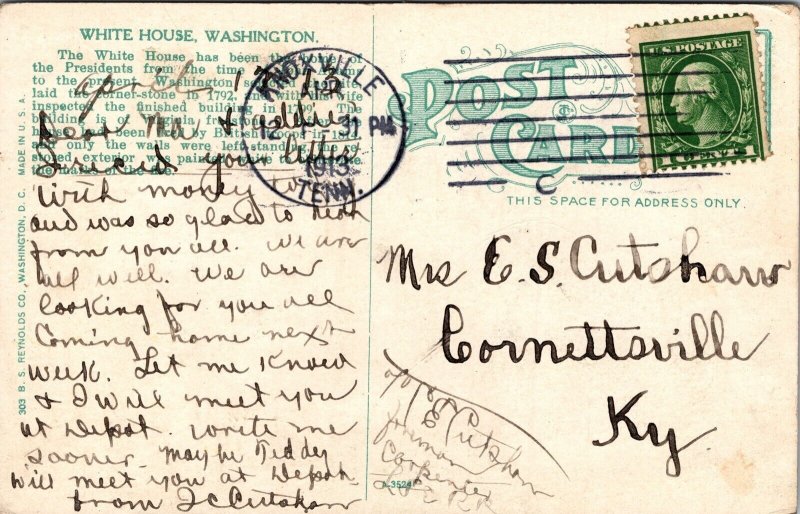 WHITE HOUSE, WASHINGTON.
The White House has been the home of
the Presidents from the time
to the present. Washington
laid corner-stone in 1792, and with his wife
inspected the finished building in 1799. The
building is of Virginia freestone
by British troops in 1814
only the walls were left standing.
stored, exterior was painted white
the marks of the
303 B. S. REYNOLDS CO., WASHINGTON, D. C. MADE IN U. S. A.
Dear Ma &
your letter
with money
and was so glad to hear
from you all. We are
all well. We are
looking for you all
Coming home next
week. Let me Knowed
& I will meet you
at Depot. write me
sooner. maybe Teddy
will meet you at Depot.
from J C Cutshaw
KNOXVILLE
12 31 PM
1913
TENN.
POST
CARD
U.S. POSTAGE
1 CENTS 1
THIS SPACE FOR ADDRESS ONLY.
Mrs E. S. Cutshaw
Cornettsville
Ky.
E Cutshaw
foreman
Carpenter
A-3524